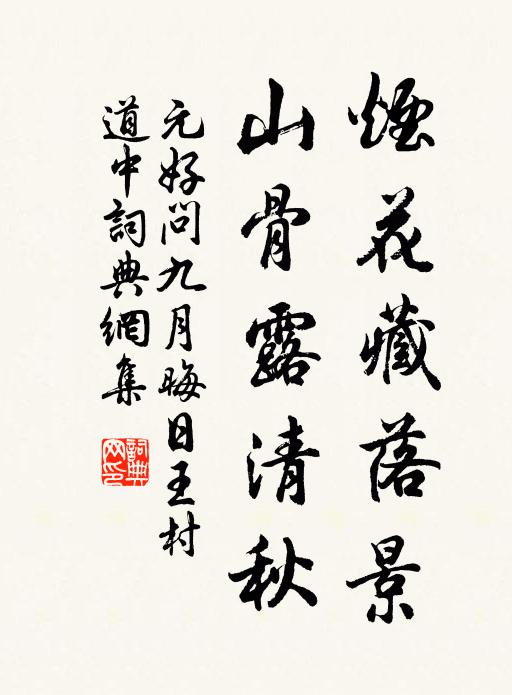 煙花藏落景
山骨露清秋
元好問九月晦日王村
道中詞典網集
詞典
网印